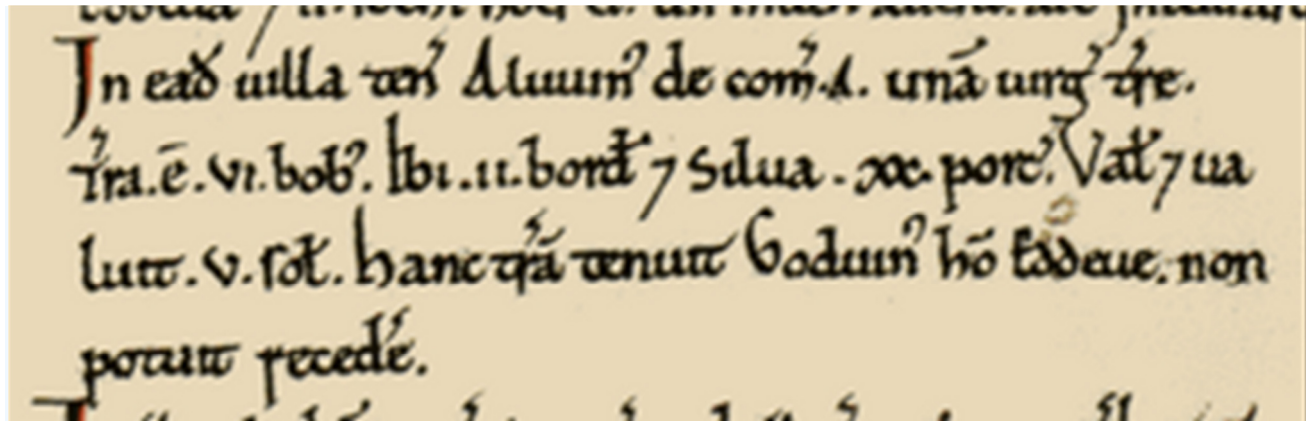 In ead̄ uilla ten̄ Aluuin⁹ de com̄.A. unā uirḡ tr̄e.
Tr̄a.ē.vi.bob⁹. Ibi.ii.bord̄ ⁊ Silua.xx.porc̄. Val̄ ⁊ ua
luit.v.sol̄. hanc tr̄ā tenuit Goduin⁹ hō Eddeue. non
potuit recedē.